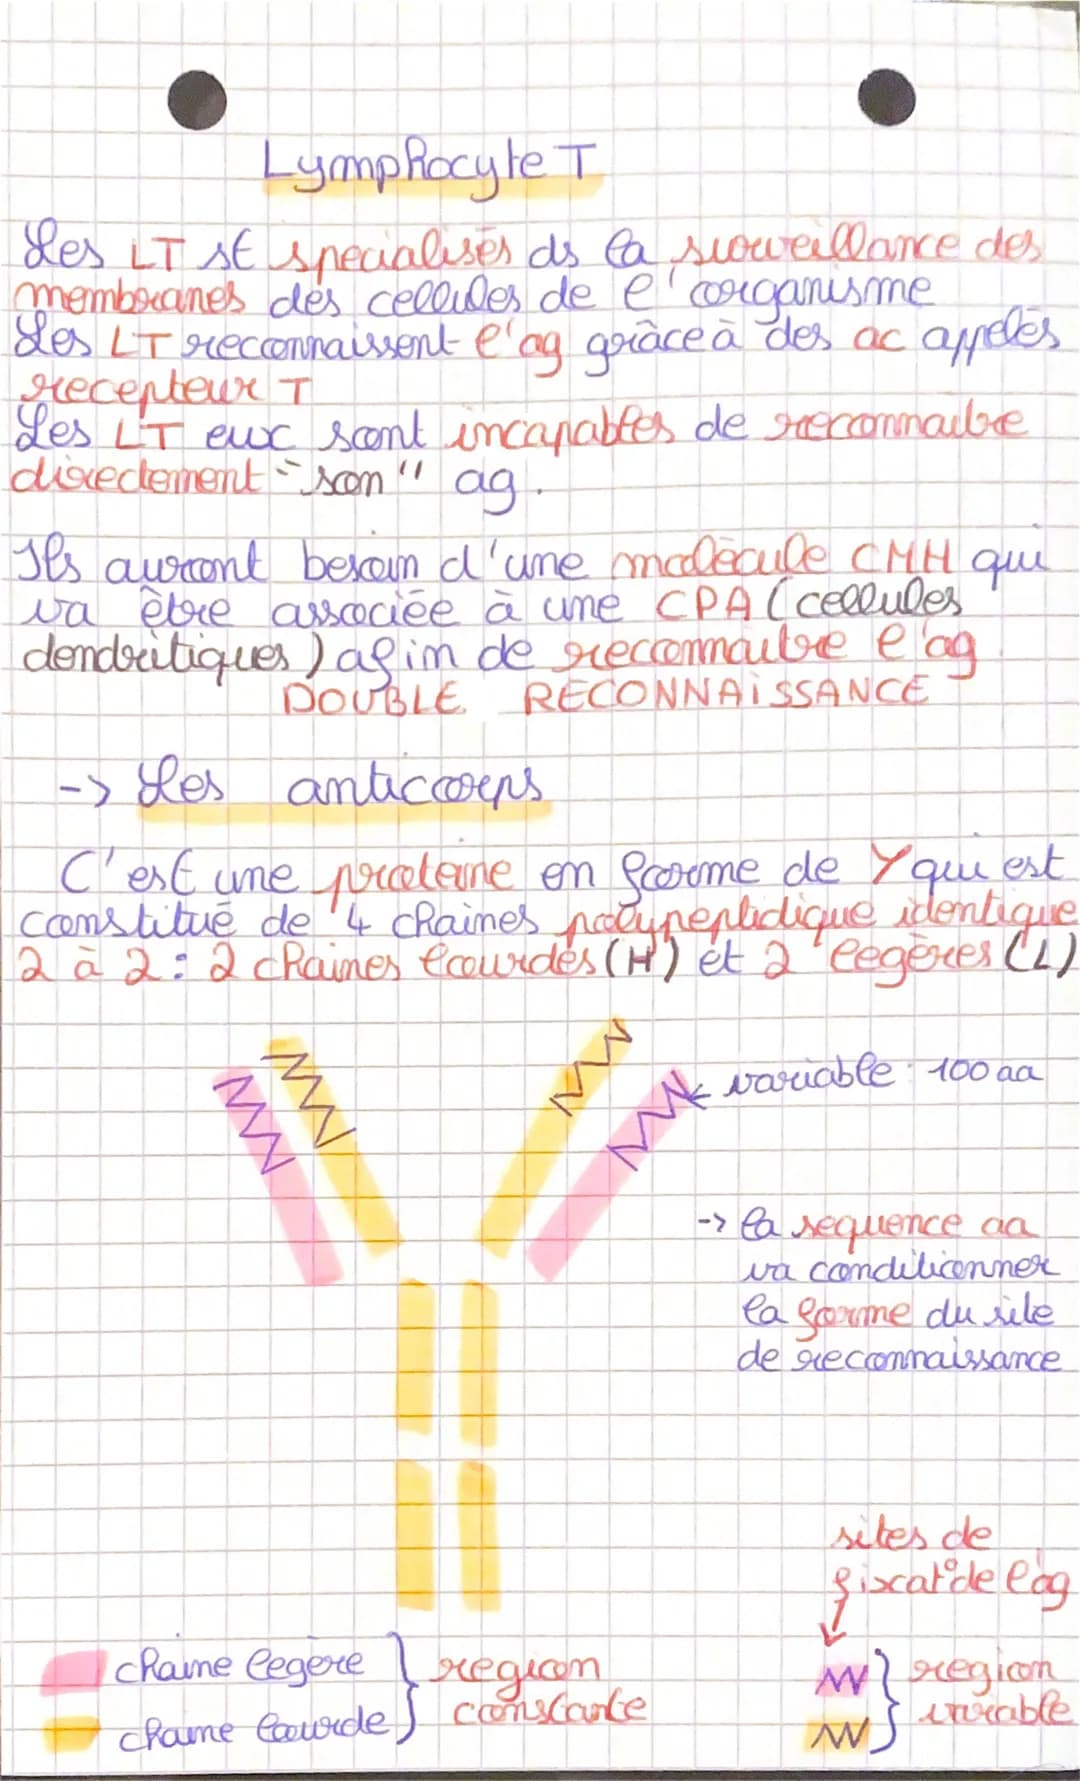 Lymphocyte T
Les LT st specialisés ds la surveillance des
membranes des cellules de l'organisme
Les LT reconnaissent l'ag grâce à des ac appelés
recepteur T
Les LT eux sont incapables de reconnaitre
directement "son" ag.
Ils auront besoin d'une molécule CMH qui
va être associée à une CPA (cellules
dendritiques) afin de reconnaitre l'ag
DOUBLE RECONNAiSSANCE
-> Les anticorps
C'est une proteine en forme de Y qui est
constitué de 4 chaines polypeptidique identique
2 à 2 : 2 chaines lourdes (H) et 2 legères (L)
variable : 100 aa
-> la sequence aa
va conditionner
la forme du site
de reconnaissance
sites de
fixat° de l'ag
chaine legère
chaine lourde
region
constante
region
variable